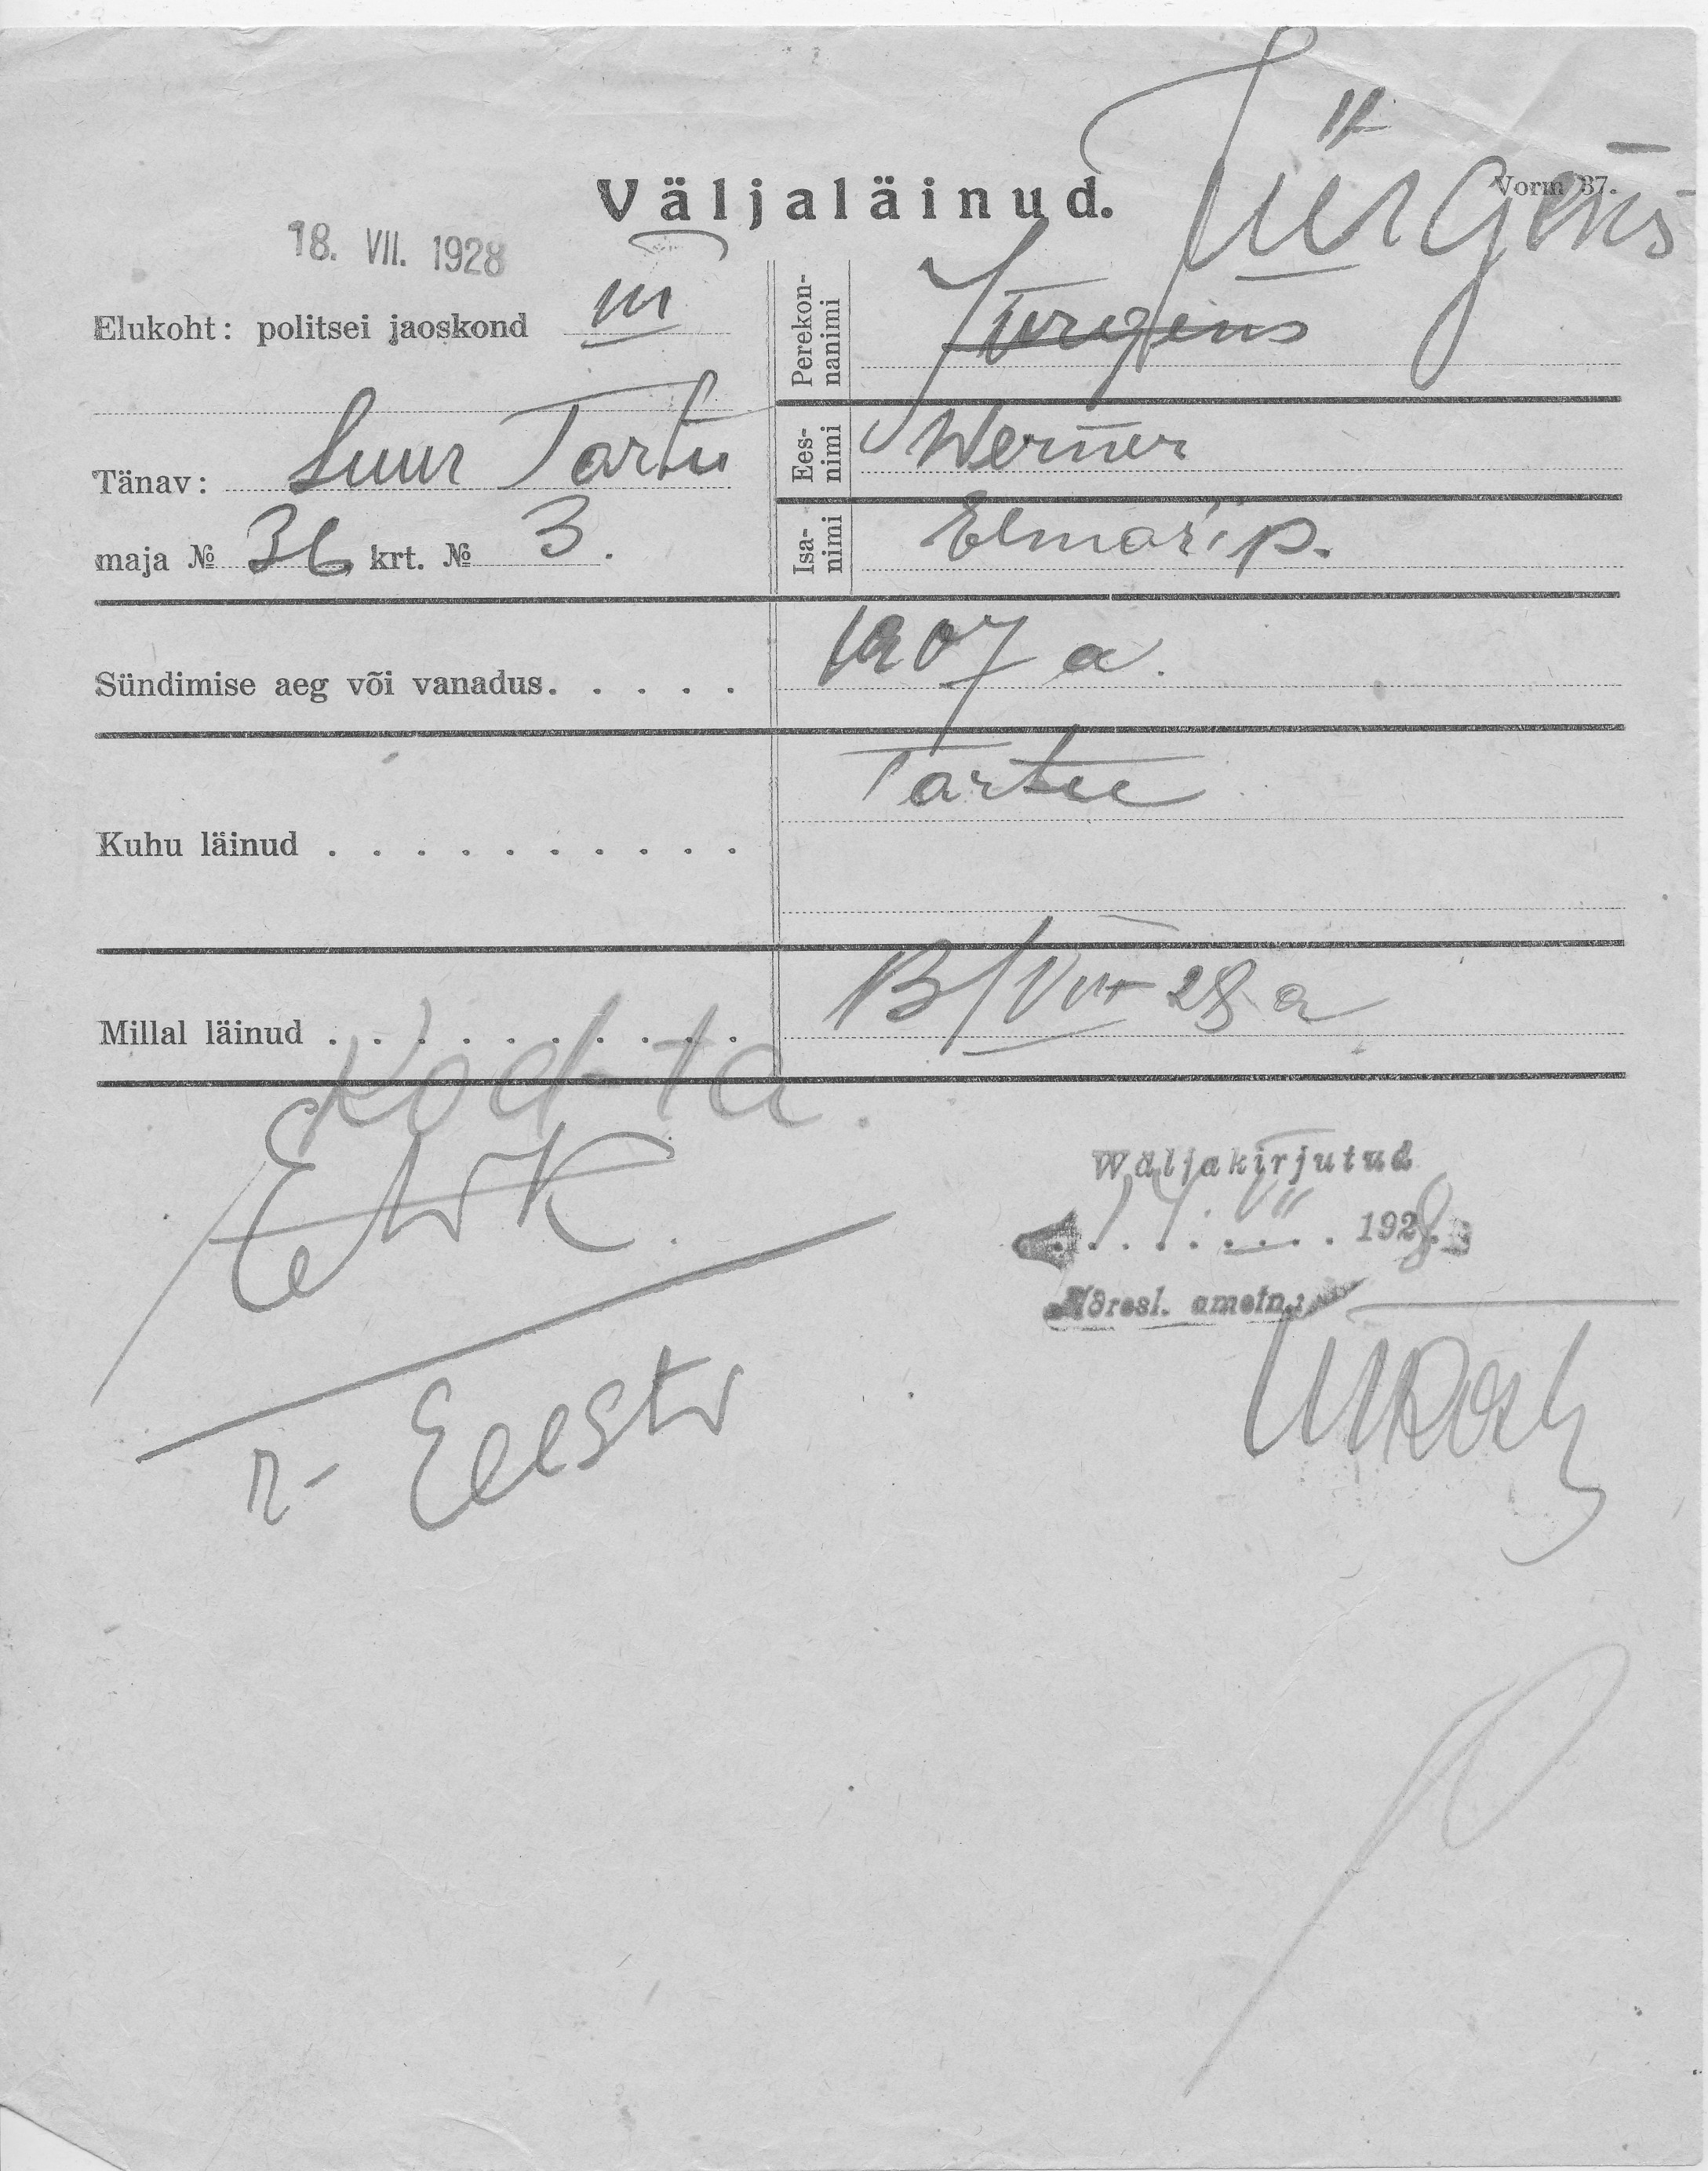 Jürgens
Väljaläinud.
Vorm 37.
18. VII. 1928
Elukoht: politsei jaoskond III
Perekon-
nanimi
Jürgens
Tänav: Suur Tartu
Ees-
nimi
Werner
maja № 36 krt. № 3.
Isa-
nimi
Elmari p.
Sündimise aeg või vanadus. . . . . . 1907 a.
Kuhu läinud . . . . . . . . . . . Tartu
Millal läinud . . . . . . . . . . . 13/VII 28 a
Kod-ta.
Wäljakirjutud
14. VII 1928.
Adresl. ametn.:
r- Eesti